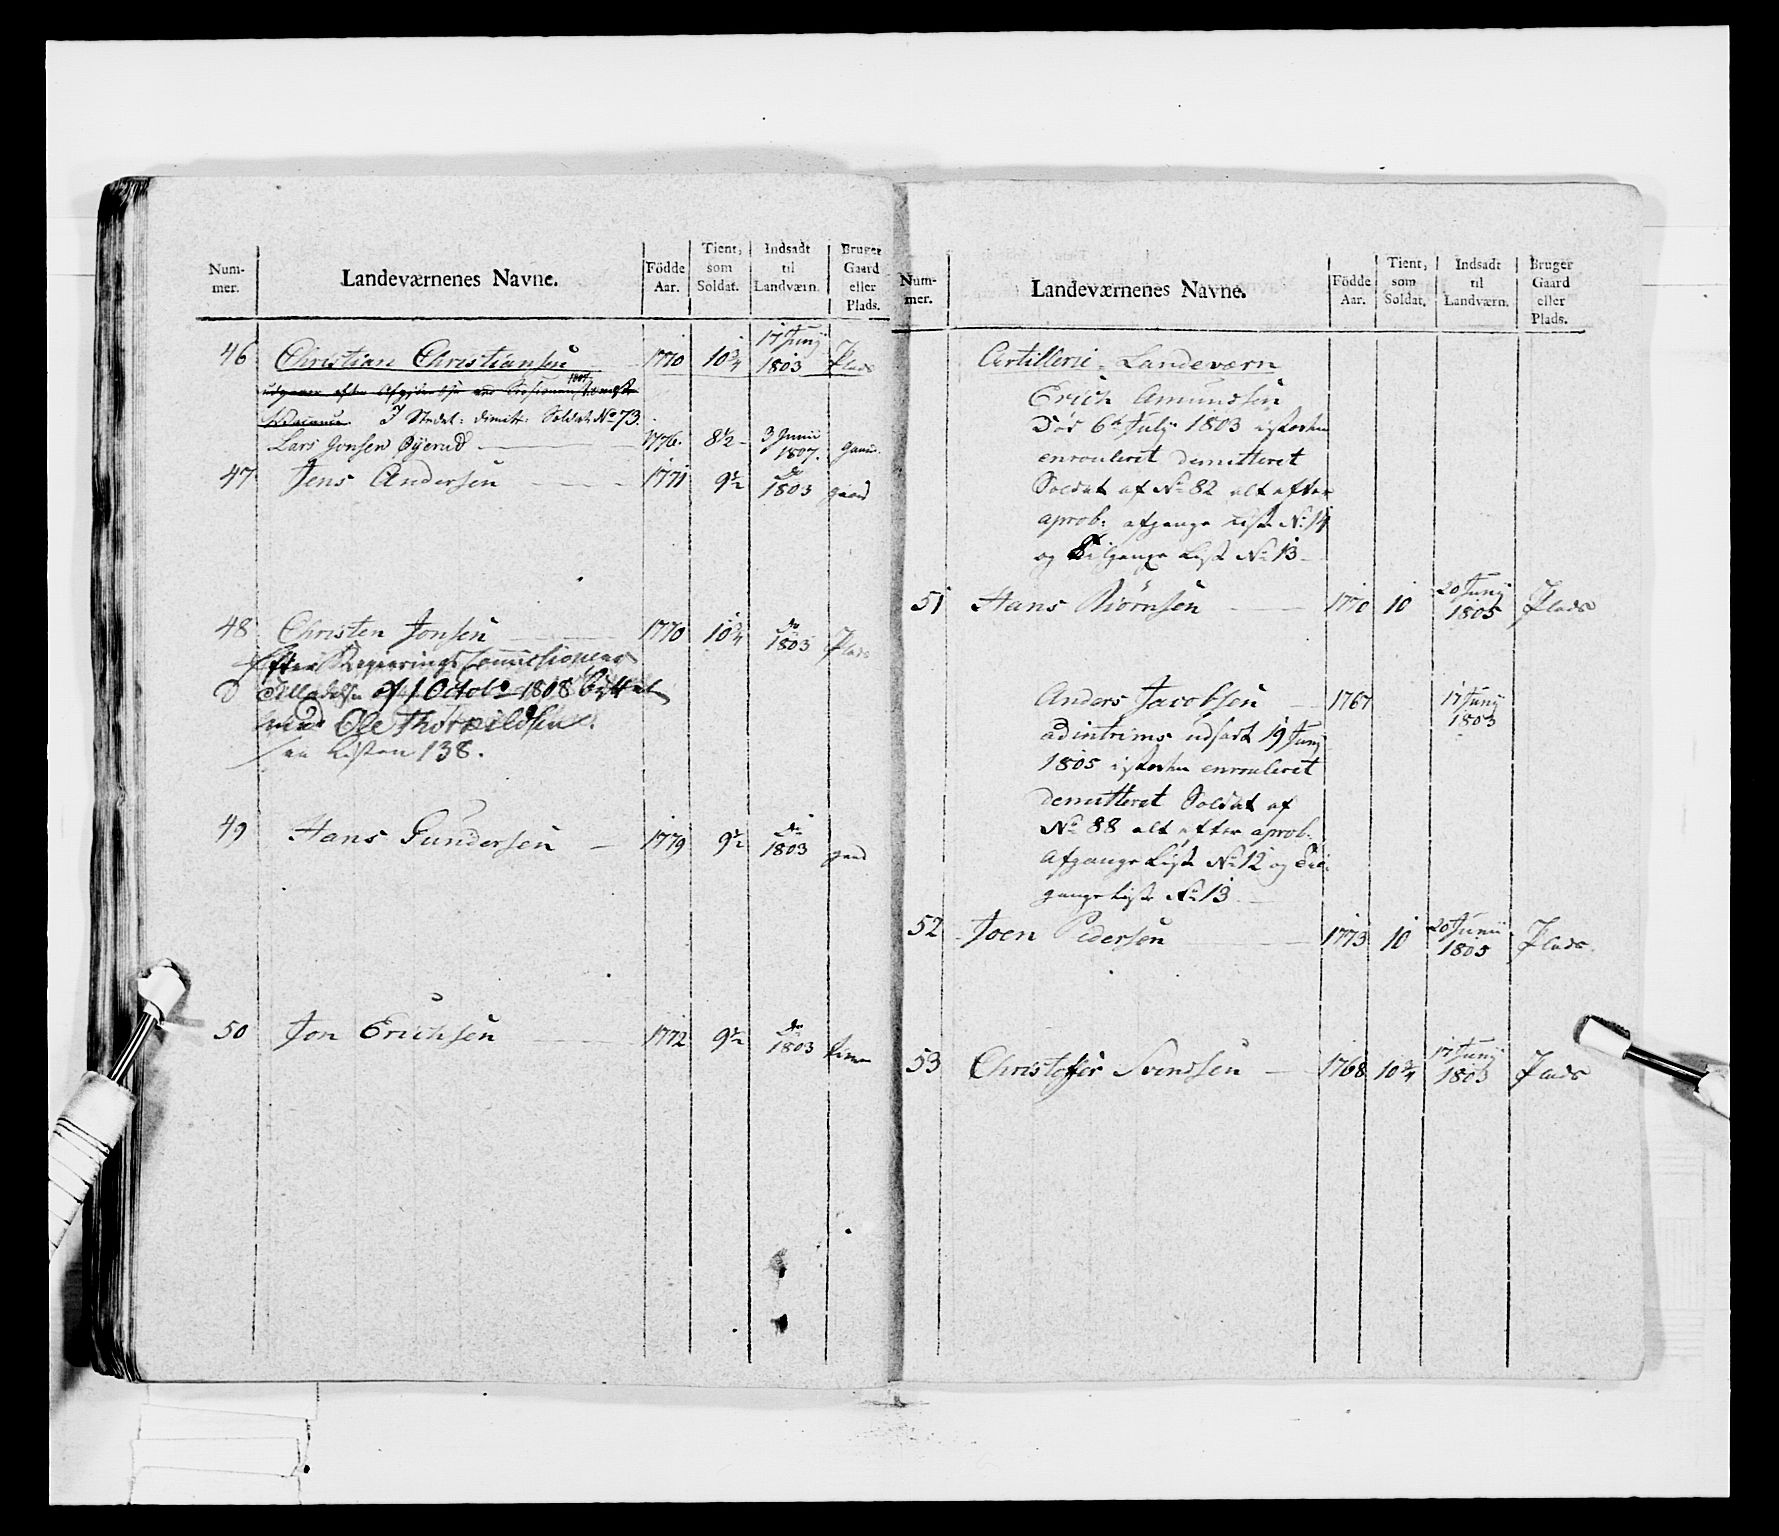 Num-
mer.
Landeværnenes Navne.
Födde
Aar.
Tient,
som
Soldat.
Indsadt
til
Landværn.
Bruger
Gaard
eller
Plads.
46 Christian Christiansen 1770 10 3/4 17 Junij 1803 Plads
1807
Vacance. I Stedet: dimitt: Soldat No 73.
Lars Jonsen Øyerud 1776. 8 1/2 3 Junii 1807. gaard.
47 Jens Andersen 1771 9 1/2 do 1803 gaard
48 Christen Jonsen 1770 10 3/4 do 1803 Plads
Efter Regierings Commissionens
Tilladelse af 1 Octobr 1808 byttet
med Ole Thorkildsen.
See Listen 138.
49 Hans Gundersen 1779 9 1/2 do 1803 gaard
50 Jon Erichsen 1772 9 1/2 do 1803
Num-
mer.
Landeværnenes Navne.
Födde
Aar.
Tient,
som
Soldat.
Indsadt
til
Landværn.
Bruger
Gaard
eller
Plads.
Artillerie Landeværn
Erich Amundsen
Død 6te July 1803 isteden
enrouleret demitteret
Soldat af No 82 alt efter
aprob: afgangs Liste No 14
og Tilgangs List No 13
51 Hans Biørnsen 1770 10 20 Junij 1805 Plads
Anders Jacobsen 1767 17 Junij 1803
ad intrims udsat 19 Junij
1805 isteden enrouleret
demitteret Soldat af
No 88 alt efter aprob.
Afgangs Liste No 12 og Til-
gangs Liste No 13
52 Joen Pedersen 1773 10 20 Junii 1805 Plads.
53 Christofer Svendsen 1768 10 3/4 17 Junij 1803 Plads